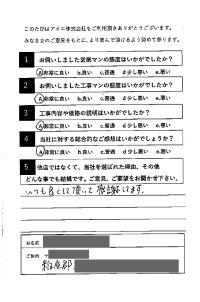 このたびはアイエ株式会社をご利用頂きありがとうございます。
みなさまのご意見をもとに、より喜んで頂けるよう努めて参ります。
1 お伺いしました営業マンの態度はいかがでしたか？
A非常に良い b.良い c.普通 d少し悪い e.悪い
2 お伺いしました工事マンの態度はいかがでしたか？
A非常に良い b.良い c.普通 d少し悪い e.悪い
3 工事内容や価格の説明はいかがでしたか？
A非常に良い b.良い c.普通 d少し悪い e.悪い
4 当社に対する総合的なご感想はいかがでしょうか？
A非常に良い b.良い c.普通 d少し悪い e.悪い
5 他店ではなくて、当社を選ばれた理由、その他
どんな事でも結構です。ご意見、ご要望をお聞かせ下さい。
いつも良くして頂いて感謝います。
お名前
ご住所 〒
郡